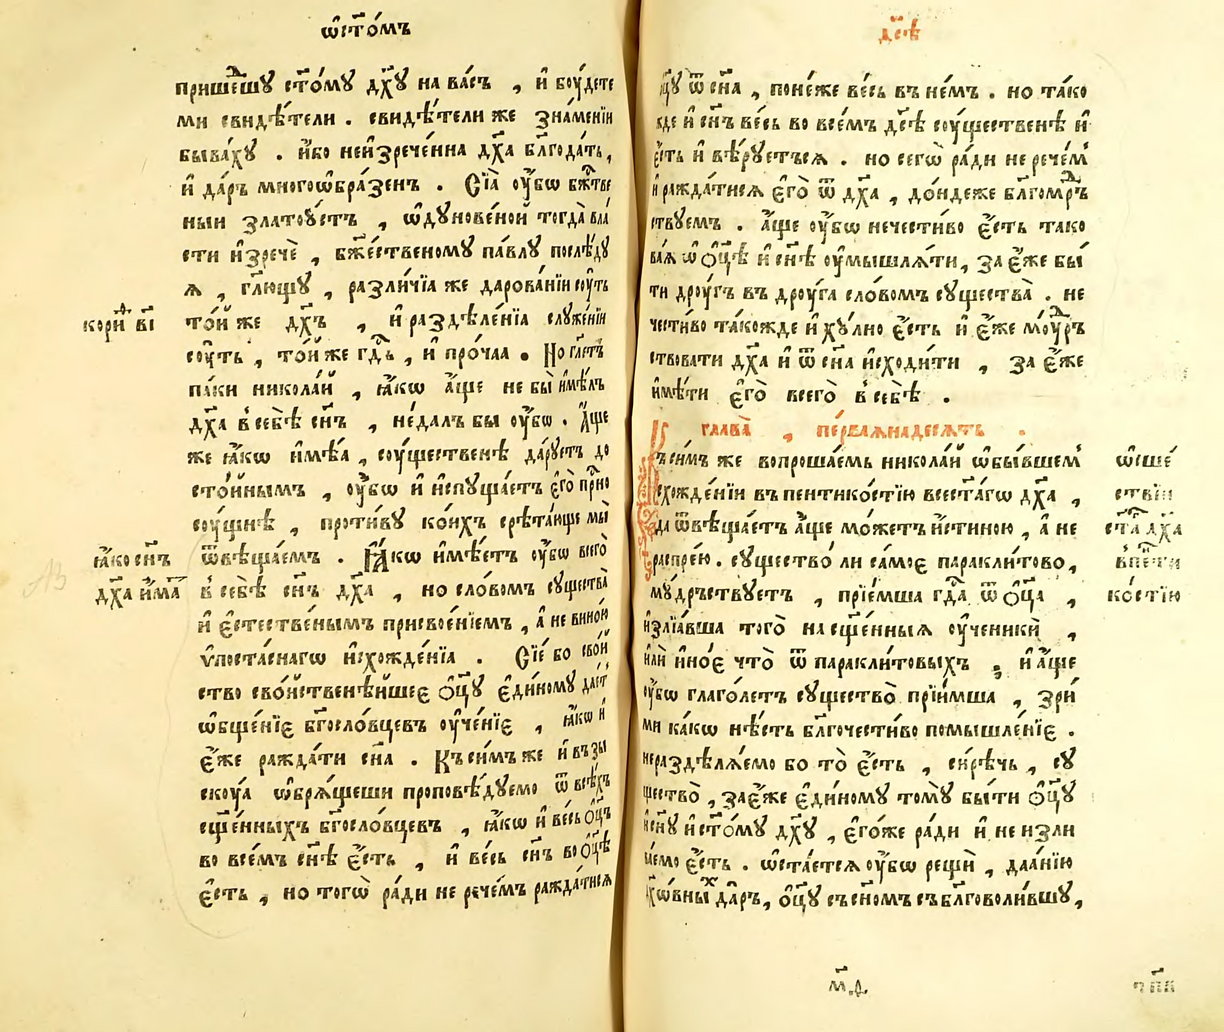 ѡ҆ст҃о́мъ
прише́дшꙋ ст҃о́мꙋ дх҃ꙋ на ва́съ , и҆ бꙋ́дете
ми свидѣ́тели . свидѣ́тели же зна́менїи
быва́хꙋ . и҆́бо неи҆зрече́нна дх҃а блг҃ода́ть ,
и҆ да́ръ многоѡ҆бра́зенъ . Сїѧ̀ ᲂу҆́бѡ бж҃тве
ныи златоꙋ́стъ , ѡ҆дꙋнове́ной тогда̀ вла́
сти и҆зречѐ , бж҃е́ственомꙋ па́влꙋ послѣ́дꙋ
ѧ , гл҃ющꙋ , разли́чїа же дарова́нїи сꙋ́ть
кори́н в҃і
то́й же дх҃ъ , и҆ раздѣле́нїа слꙋже́нїи
сꙋ́ть , то́й же гд҃ь , и҆ про́чаа . Но гл҃етъ
па́ки никола́й , ꙗ҆́кѡ а҆́ще не бы̀ и҆мѣ́лъ
дх҃а в̾ себѣ̀ сн҃ъ , не́далъ бы ᲂу҆́бѡ . А҆́ще
же ꙗ҆́кѡ и҆мѣ́а , сꙋ́щественѣ да́рꙋетъ до
сто́йнымъ , ᲂу҆́бѡ и҆ и҆спꙋща́етъ є҆го̀ при́сно
сꙋ́щнѣ , проти́вꙋ ко́ихъ срѣта́юще мы̀
ꙗ҆́ко сн҃ъ
ѿвѣща́емъ . Ꙗ҆́кѡ и҆мѣ́етъ ᲂу҆́бѡ всего̀
дх҃а и҆́ма
в̾ себѣ̀ сн҃ъ дх҃а , но сло́вомъ сꙋщества̀
и҆ є҆сте́ственымъ присвое́нїемъ , а҆ не вино́ю
ѵ҆поста́снагѡ и҆схожде́нїа . Сїе́ бо сво́й
ство сво́йственѣйшеє ѻ҆ц҃ꙋ є҆ди́номꙋ дае́т
ѡ҆́бщенїє бг҃осло́вцевъ ᲂу҆че́нїє , ꙗ҆́кѡ и҆
є҆́же ражда́ти сн҃а . Къ си́мъ же и҆ въ зы
скꙋ́а ѡ҆брѧ́щеши проповѣ́дꙋемо ѿ всѣ́хъ
сщ҃е́нныхъ бг҃осло́вцевъ , ꙗ҆́кѡ и҆ ве́сь ѻ҆ц҃ъ
во все́мъ сн҃ѣ є҆́сть , и҆ ве́сь сн҃ъ во ѻ҆ц҃ѣ
є҆́сть , но тогѡ̀ ра́ди не рече́мъ ражда́тисѧ
дс҃ѣ
ѻ҆ц҃ꙋ ѿ сн҃а , поне́же ве́сь въ не́мъ . но та́ко
жде и҆ сн҃ъ ве́сь во все́мъ дс҃ѣ сꙋ́щественѣ и҆
є҆́сть и҆ вѣ́рꙋетъсѧ . но сегѡ̀ ра́ди не рече́м
и҆ ражда́тисѧ є҆го̀ ѿ дх҃а , до́ндеже блг҃омꙋ́др
ствꙋемъ . а҆́ще ᲂу҆́бѡ нечести́во є҆́сть тако
ваѧ ѡ҆ ѻ҆ц҃ѣ и҆ сн҃ѣ ᲂу҆мышлѧ́ти , за є҆́же бы́
ти дрꙋ́гъ въ дрꙋ́га сло́вомъ сꙋщества̀ . не
чести́во та́кожде и҆ хꙋ́лно є҆́сть и҆ є҆́же мꙋ́др
ствовати дх҃а и҆ ѿ сн҃а и҆сходи́ти , за є҆́же
и҆мѣ́ти є҆го̀ всего̀ в̾ себѣ̀ .
глава̀ , пе́рваѧнадесѧть .
Къ си́мъ же вопроша́емь никола́й ѡ҆бы́вшем
ѡ҆ сше́
схожде́нїи въ пентико́стїю всест҃а́гѡ дх҃а ,
ствїи
да ѿвѣща́етъ а҆́ще мо́жетъ и҆́стиною , а҆ не
ст҃а́ дх҃а
распре́ю . сꙋщество́ ли само́є паракли́тово ,
в̾ пе́ти
мꙋ́дръствꙋетъ , прїе́мша гд҃а ѿ ѻ҆ц҃а ,
ко́стїю
и҆злїа́вша того̀ на сщ҃е́нныѧ ᲂу҆ченикѝ ,
и҆лѝ и҆но́є что̀ ѿ паракли́товыхъ , и҆ а҆́ще
ᲂу҆́бѡ глаго́летъ сꙋщество̀ прїи́мша , зри́
ми ка́кѡ нѣ́сть блг҃очести́во помышле́нїє .
нераздѣлѧ́емо бо то̀ є҆́сть , си́рѣчь , сꙋ
щество̀ , за є҆́же є҆ди́номꙋ томꙋ̀ бы́ти ѻ҆ц҃ꙋ
и҆ сн҃ꙋ и҆ ст҃о́мꙋ дх҃ꙋ , є҆го́же ра́ди и҆ не и҆зли
ва́емо є҆́сть . ѡ҆ста́етсѧ ᲂу҆́бѡ рещѝ , даа́нїю
дх҃ѡ́вных да́ръ , ѻ҆ц҃ꙋ съ сн҃омъ съ блг҃оволи́вшꙋ ,
м҃д